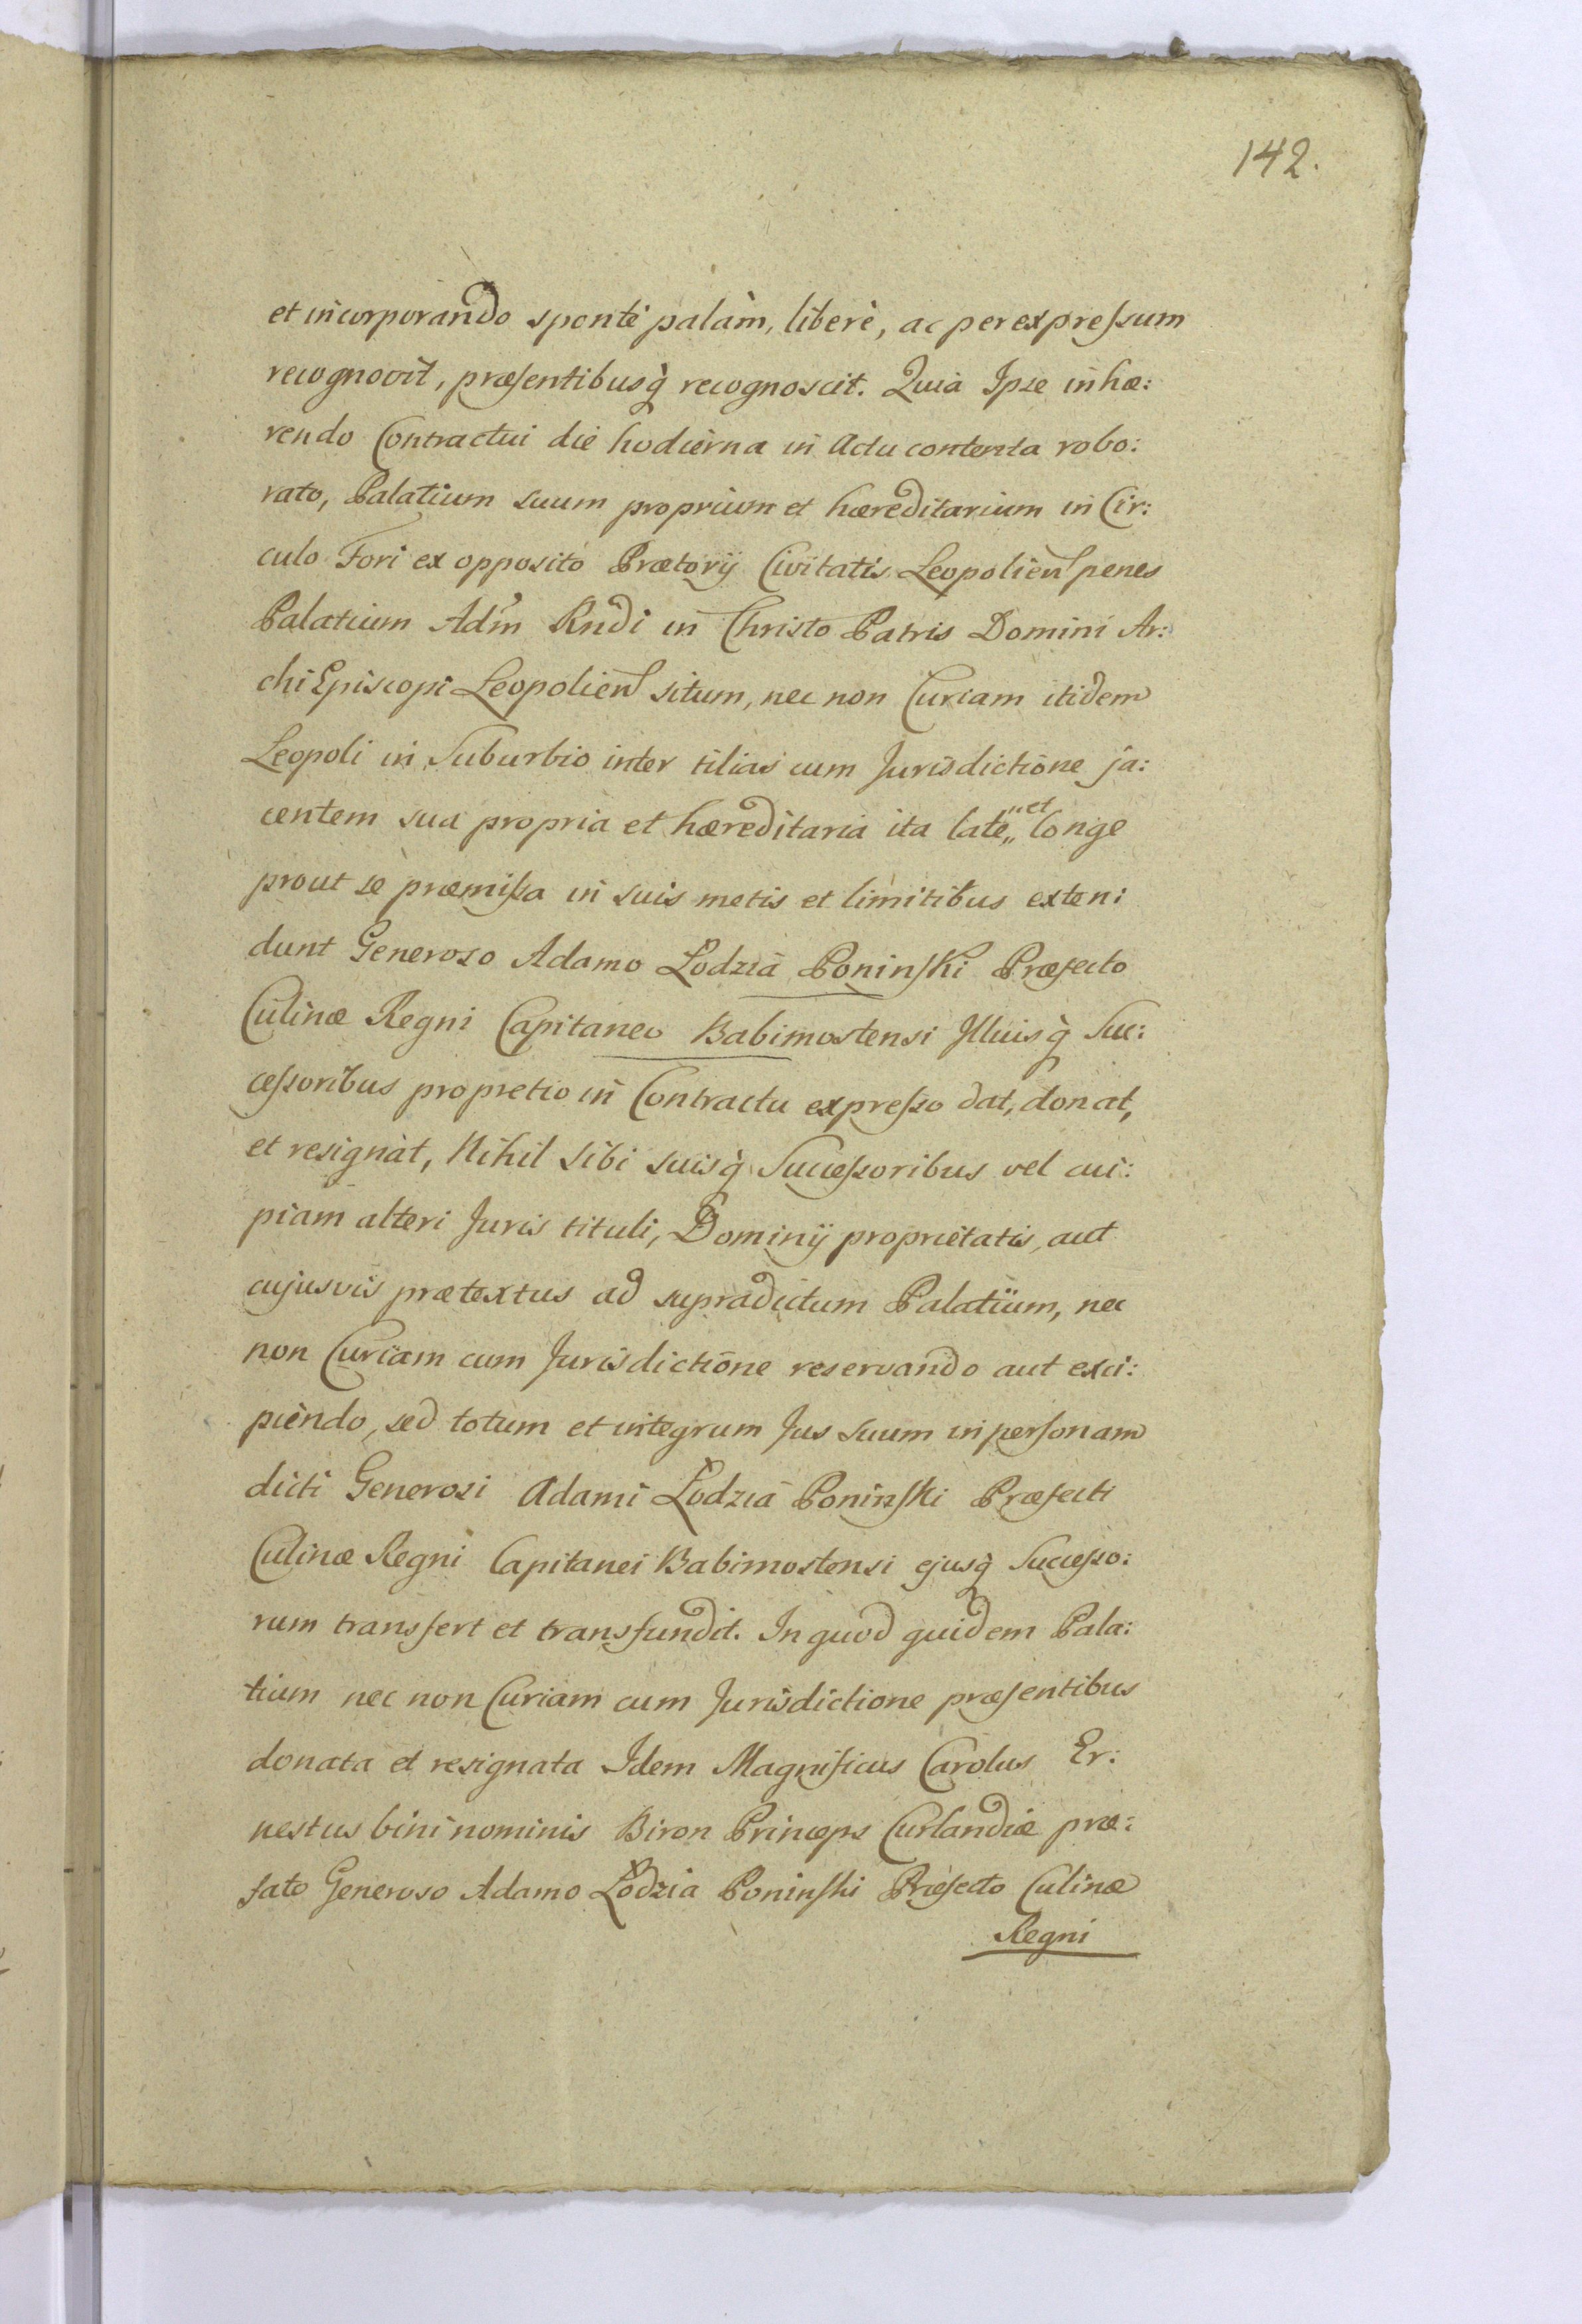 142.
et incorporando sponte palàm, liberè, ac per expressum
recognovit, præsentibusq̀ recognoscit. Quia Ipse inhæ:
rendo Contractui die hodierna in Actu contenta robo:
rato, Palatium suum proprium et hæreditarium in Cir:
culo Fori ex opposito Prætorij Civitatis Leopolien̄ penes
Palatium Adm̃ Rndi in Christo Patris Domini Ar:
chi Episcopi Leopolien̄ situm, nec non Curiam itidem
Leopoli in Suburbio inter tilias cum Jurisdictione ja:
centem sua propria et hæreditaria ita late„ "et longe
prout se præmissa in suis metis et limitibus exten:
dunt Generoso Adamo Łodzia Poninski Præfecto
Culinæ Regni Capitaneo Babimostensi Illiusq̀ Suc:
cessoribus pro pretio in Contractu expresso dat, donat,
et resignat, Nihil sibi suisq̀ Successoribus vel cui:
piam alteri Juris tituli, Dominij proprietatis, aut
cujusvis prætextus ad supradictum Palatium, nec
non Curiam cum Jurisdictione reservando aut exci:
piendo, sed totum et integrum Jus suum in personam
dicti Generosi Adami Łodzia Poninski Præfecti
Culinæ Regni Capitanei Babimostensi ejusq̀ Successo:
rum transfert et transfundit. In quod quidem Pala:
tium nec non Curiam cum Jurisdictione præsentibus
donata et resignata Idem Magnificus Carolus Er:
nestus bini nominis Biron Princeps Curlandiæ præ:
fato Generoso Adamo Łodzia Poninski Præfecto Culinæ
Regni